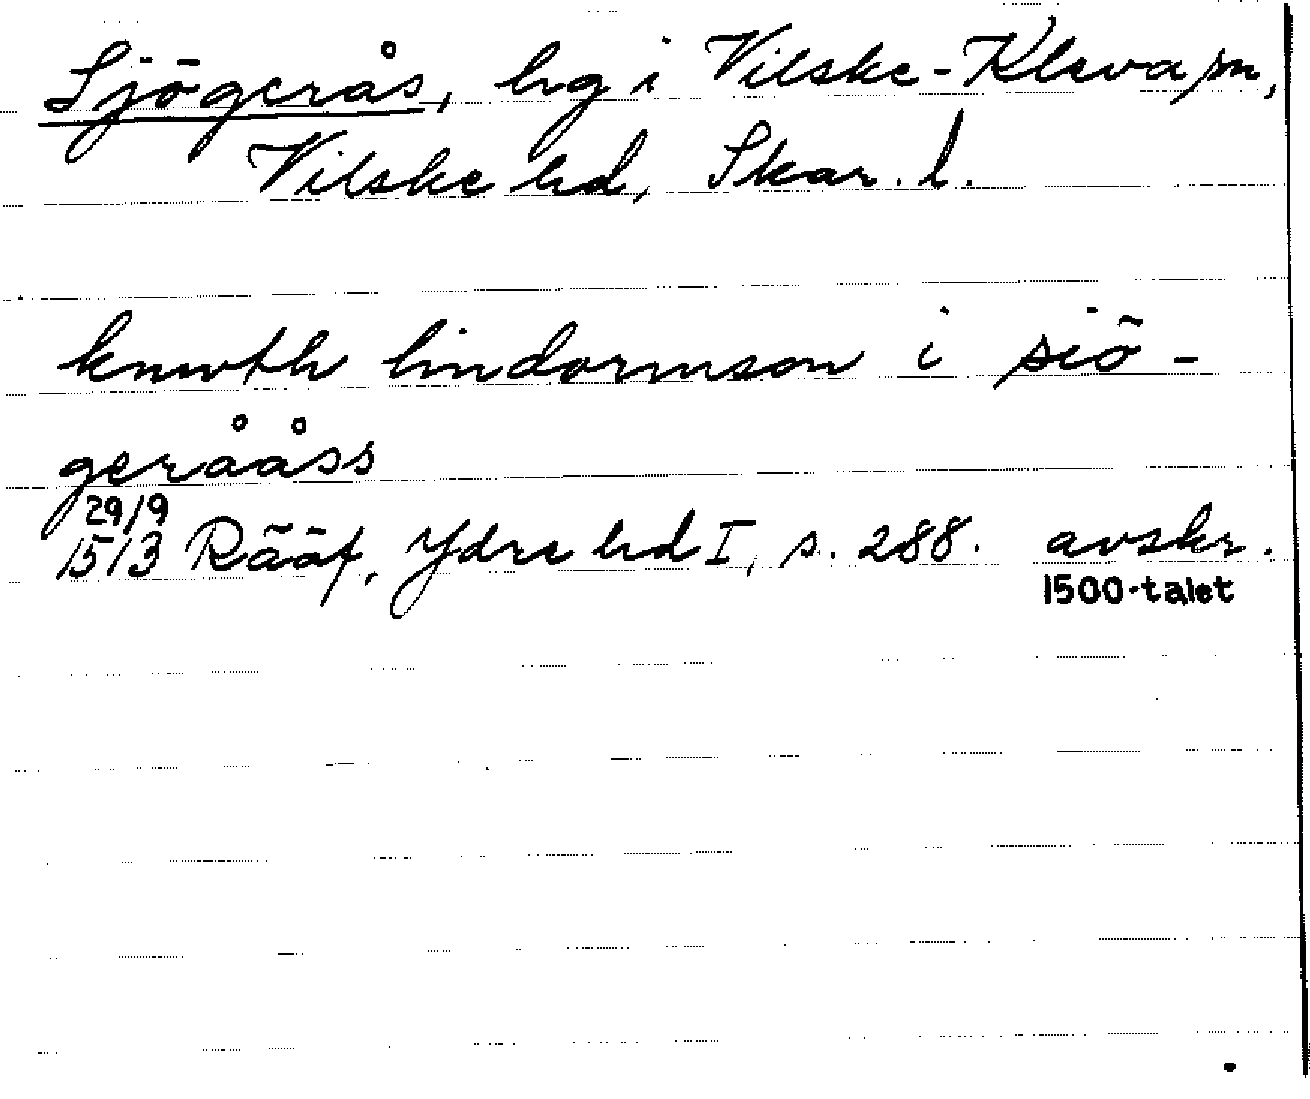 Sjögerås, hg i Vilske-Kleva sn,
Vilske hd, Skar. l.
knwth lindormson i siö-
gerååss
29/9
1513 Rääf, Ydre hd I, s. 288. avskr.
1500-talet